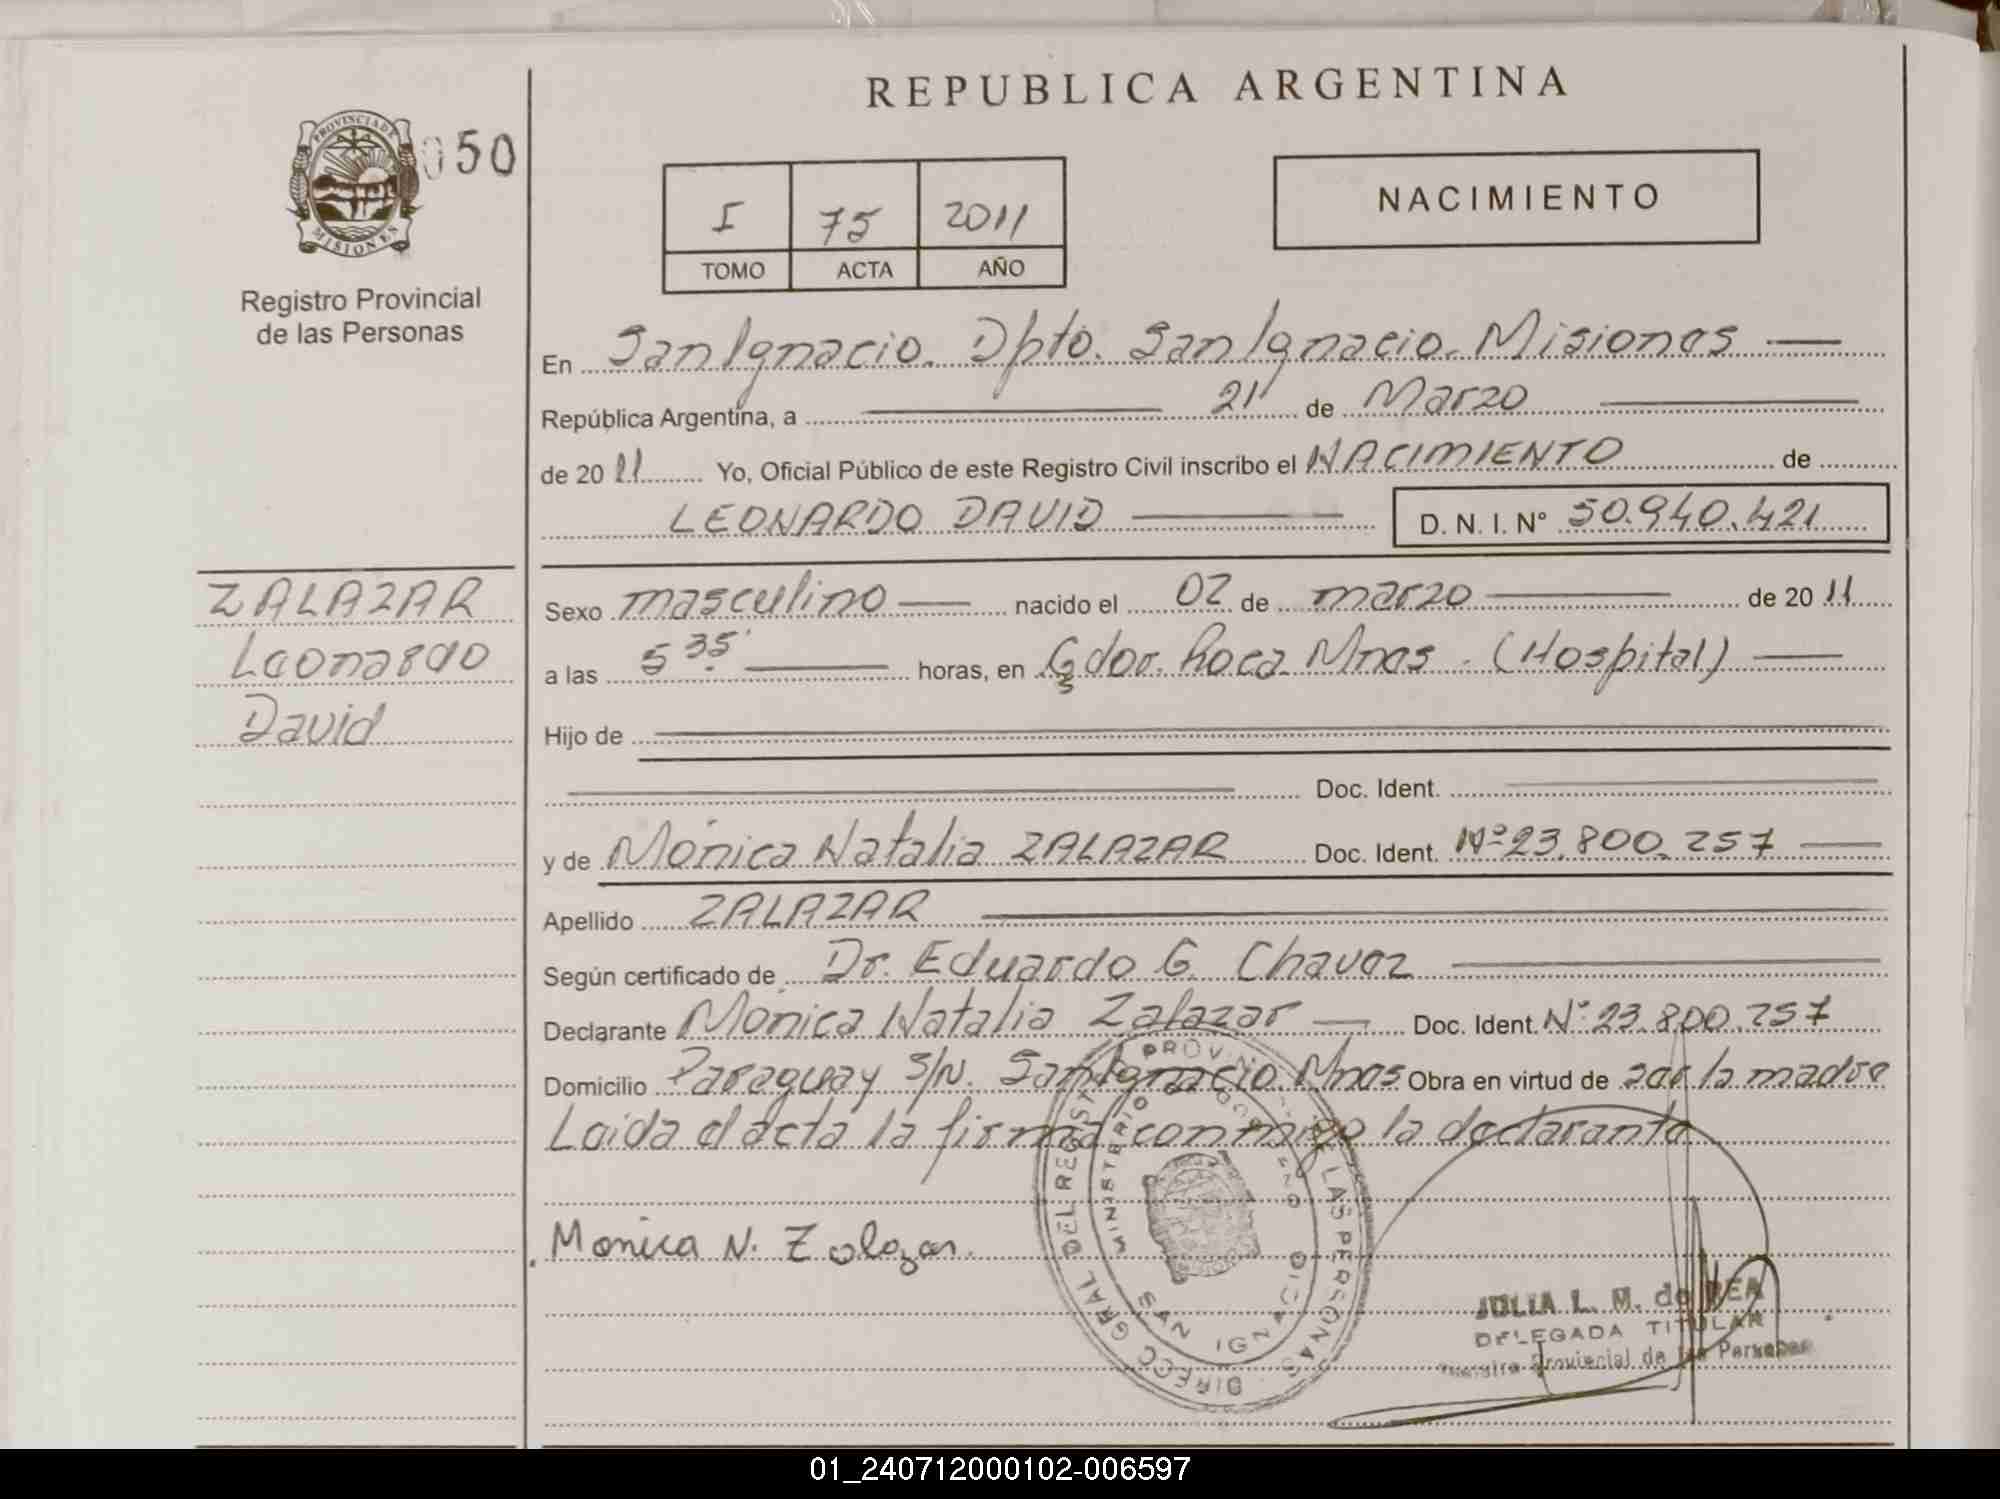 REPUBLICA ARGENTINA
PROVINCIA DE
MISIONES
050
Registro Provincial
de las Personas
I 75 2011
TOMO ACTA AÑO
NACIMIENTO
En San Ignacio. Dpto. San Ignacio. Misiones
República Argentina, a 21 de Marzo
de 2011 Yo, Oficial Público de este Registro Civil inscribo el NACIMIENTO de
LEONARDO DAVID D. N. I. N° 50.940.421
ZALAZAR
Leonardo
David
Sexo masculino nacido el 02 de marzo de 2011
a las 5 35' horas, en Gdor. Roca Mnes. (Hospital)
Hijo de
Doc. Ident.
y de Mónica Natalia ZALAZAR Doc. Ident. Nº 23.800.257
Apellido ZALAZAR
Según certificado de Dr. Eduardo G. Chavez
Declarante Mónica Natalia Zalazar Doc. Ident. N° 23.800.257
Domicilio Paraguay S/N. San Ignacio. Mnes Obra en virtud de ser la madre
Leida el acta la firma conmigo la declarante
Monica N. Zalazar.
DIRECC GRAL DEL REGIST PROVIN DE LAS PERSONAS
MINISTERIO DE GOBIERNO
SAN IGNACIO
JULIA L. M. de BEA
DELEGADA TITULAR
Registro Provincial de las Personas
01_240712000102-006597